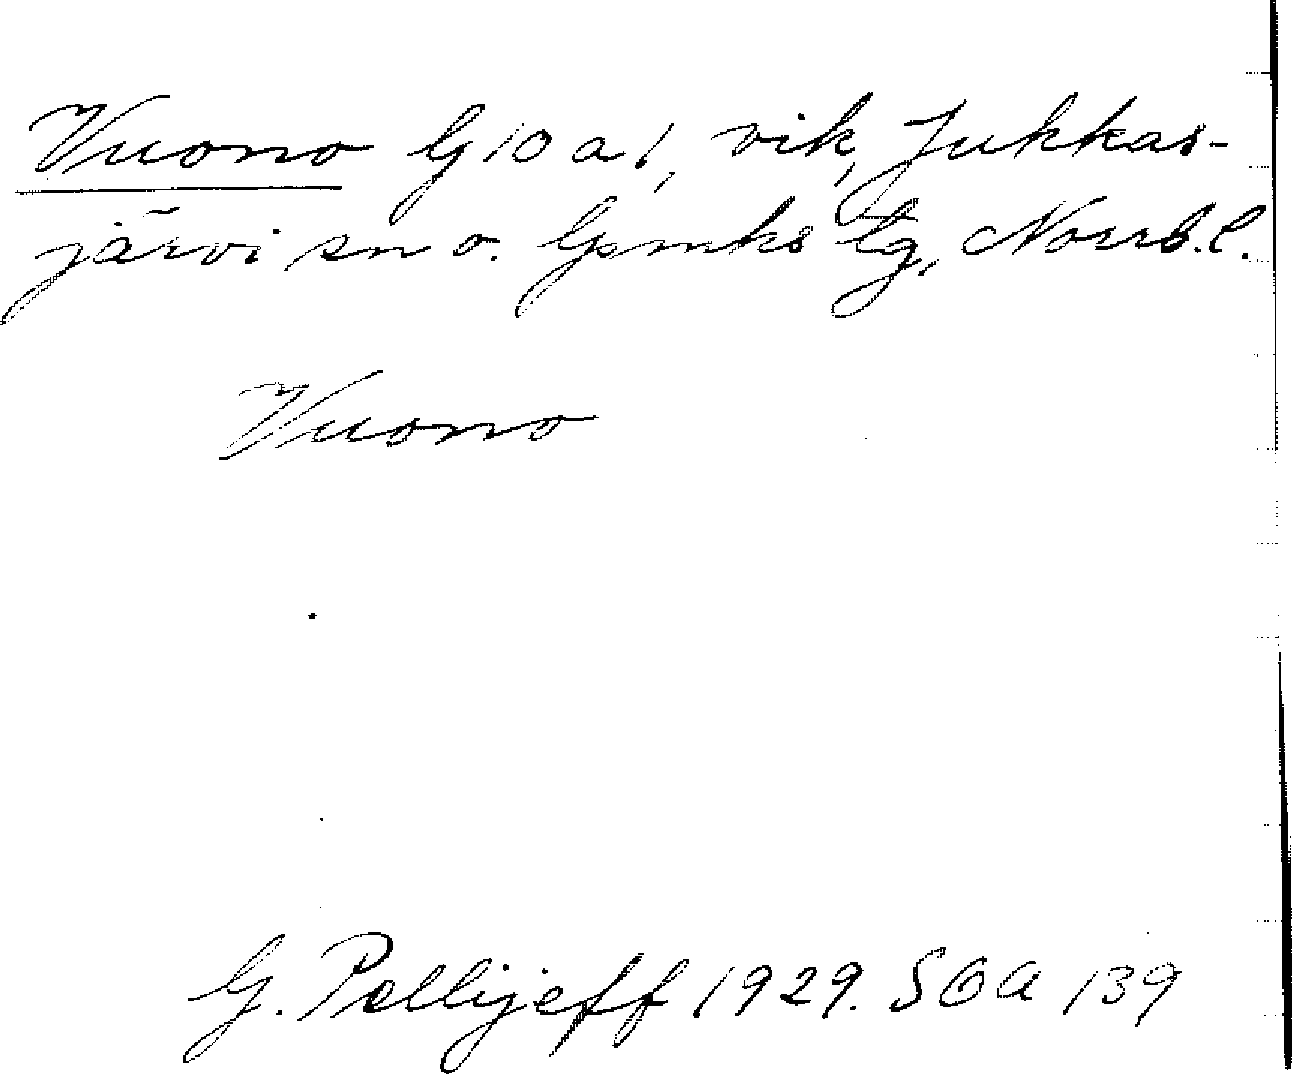 Vuono G 10 a 1, vik, Jukkas-
järvi sn o. Gpmks tg, Norrb. l.
Vuono
G. Pellijeff 1929. SOA 139